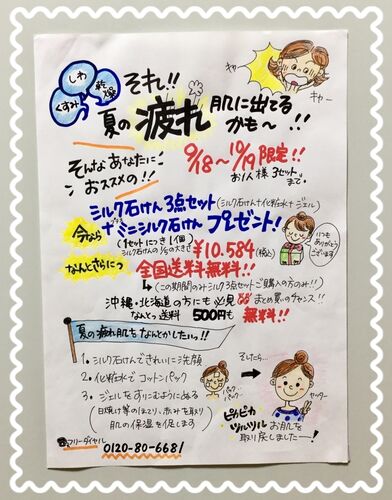 しわ
くすみ
乾燥
それ!!
夏の疲れ肌に出てる
かも〜!!
キャー
キャー
そんなあなたに
おススメの!!
9/18〜10/19限定!!
お1人様3セット
まで。
シルク石けん3点セット(シルク石けん+化粧水+ジェル)
今なら
プラス
+ミニシルク石けんプレゼント!
(1セットにつき1個)
シルク石けんの1/5の大きさ
¥10.584(税込)
いつも
ありがとう
ございます
なんとさらにっ
全国送料無料!!
↳(この期間のみシルク3点セットご購入の方のみ!!)
沖縄・北海道の方にも必見 まとめ買いのチャンス!!
なんとっ送料 500円も 無料!!
夏の疲れ肌もなんとかしたいっ!!
1.シルク石けんできれいに洗顔
2.化粧水でコットンパック
3.ジェルをすりこむようにぬる
(日焼け等のほてり、赤みを取り
肌の保湿を促します)
パック
パック
そしたら…
ヤッター
ピカピカ
ツルツル お肌を
取り戻しましたー!
フリーダイヤル
0120-80-6681